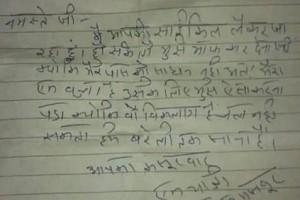 नमस्ते जी -
मैं आपकी साईकिल लेकर जा
रहा हूं। हो सके तो मुझे माफ कर देना जी
क्योंकि मेरे पास कोई साधन नही था मेरा
एक बच्चा है उसके लिए मुझे ऐसा करना
पड़ा क्योंकि वो विकलांग है चल नही
सकता हमे बरेली तक जाना है।
आपका कसूरवार
एक यात्री
मजदूर